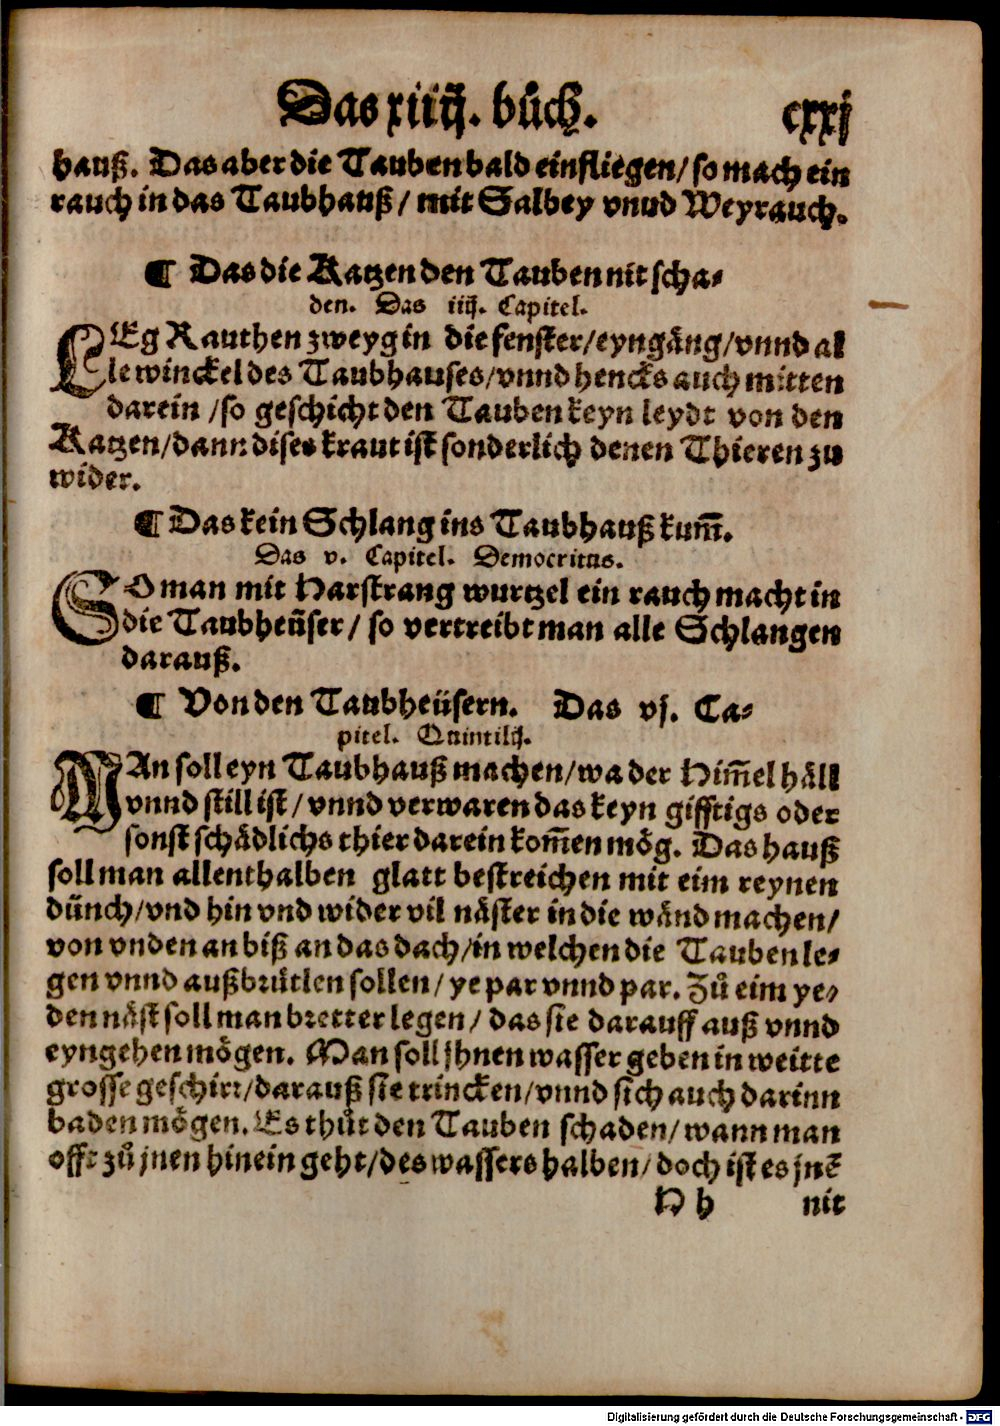 Das xiiij. bůch. cxxj
hauß. Das aber die Tauben bald einfliegen/ so mach ein
rauch in das Taubhauß/ mit Salbey vnnd Weyrauch.
¶ Das die Katzen den Tauben nit scha⸗
den. Das iiij. Capitel.
LEg Rauthen zweyg in die fenster/eyngång/vnnd al
le winckel des Taubhauses/vnnd hencks auch mitten
darein /so geschicht den Tauben keyn leydt von den
Katzen/dann dises kraut ist sonderlich denen Thieren zu
wider.
¶ Das kein Schlang ins Taubhauß kum̃.
Das v. Capitel. Democritus.
SO man mit Harstrang wurtzel ein rauch macht in
die Taubheüser/ so vertreibt man alle Schlangen
darauß.
¶ Von den Taubheüsern. Das vj. Ca⸗
pitel. Quintilij.
MAn soll eyn Taubhauß machen/wa der Him̃el håll
vnnd still ist/vnnd verwaren das keyn gifftigs oder
sonst schådlichs thier darein kom̃en mög. Das hauß
soll man allenthalben glatt bestreichen mit eim reynen
dünch/vnd hin vnd wider vil nåster in die wånd machen/
von vnden an biß an das dach/in welchen die Tauben le⸗
gen vnnd außbrütlen sollen/ ye par vnnd par. Zů eim ye⸗
den nåst soll man bretter legen/ das sie darauff auß vnnd
eyngehen mögen. Man soll jhnen wasser geben in weitte
grosse geschirr/darauß sie trincken/vnnd sich auch darinn
baden mögen. Es thůt den Tauben schaden/ wann man
offt zů jnen hinein geht/des wassers halben/ doch ist es jnẽ
H h nit
Digitalisierung gefördert durch die Deutsche Forschungsgemeinschaft - DFG